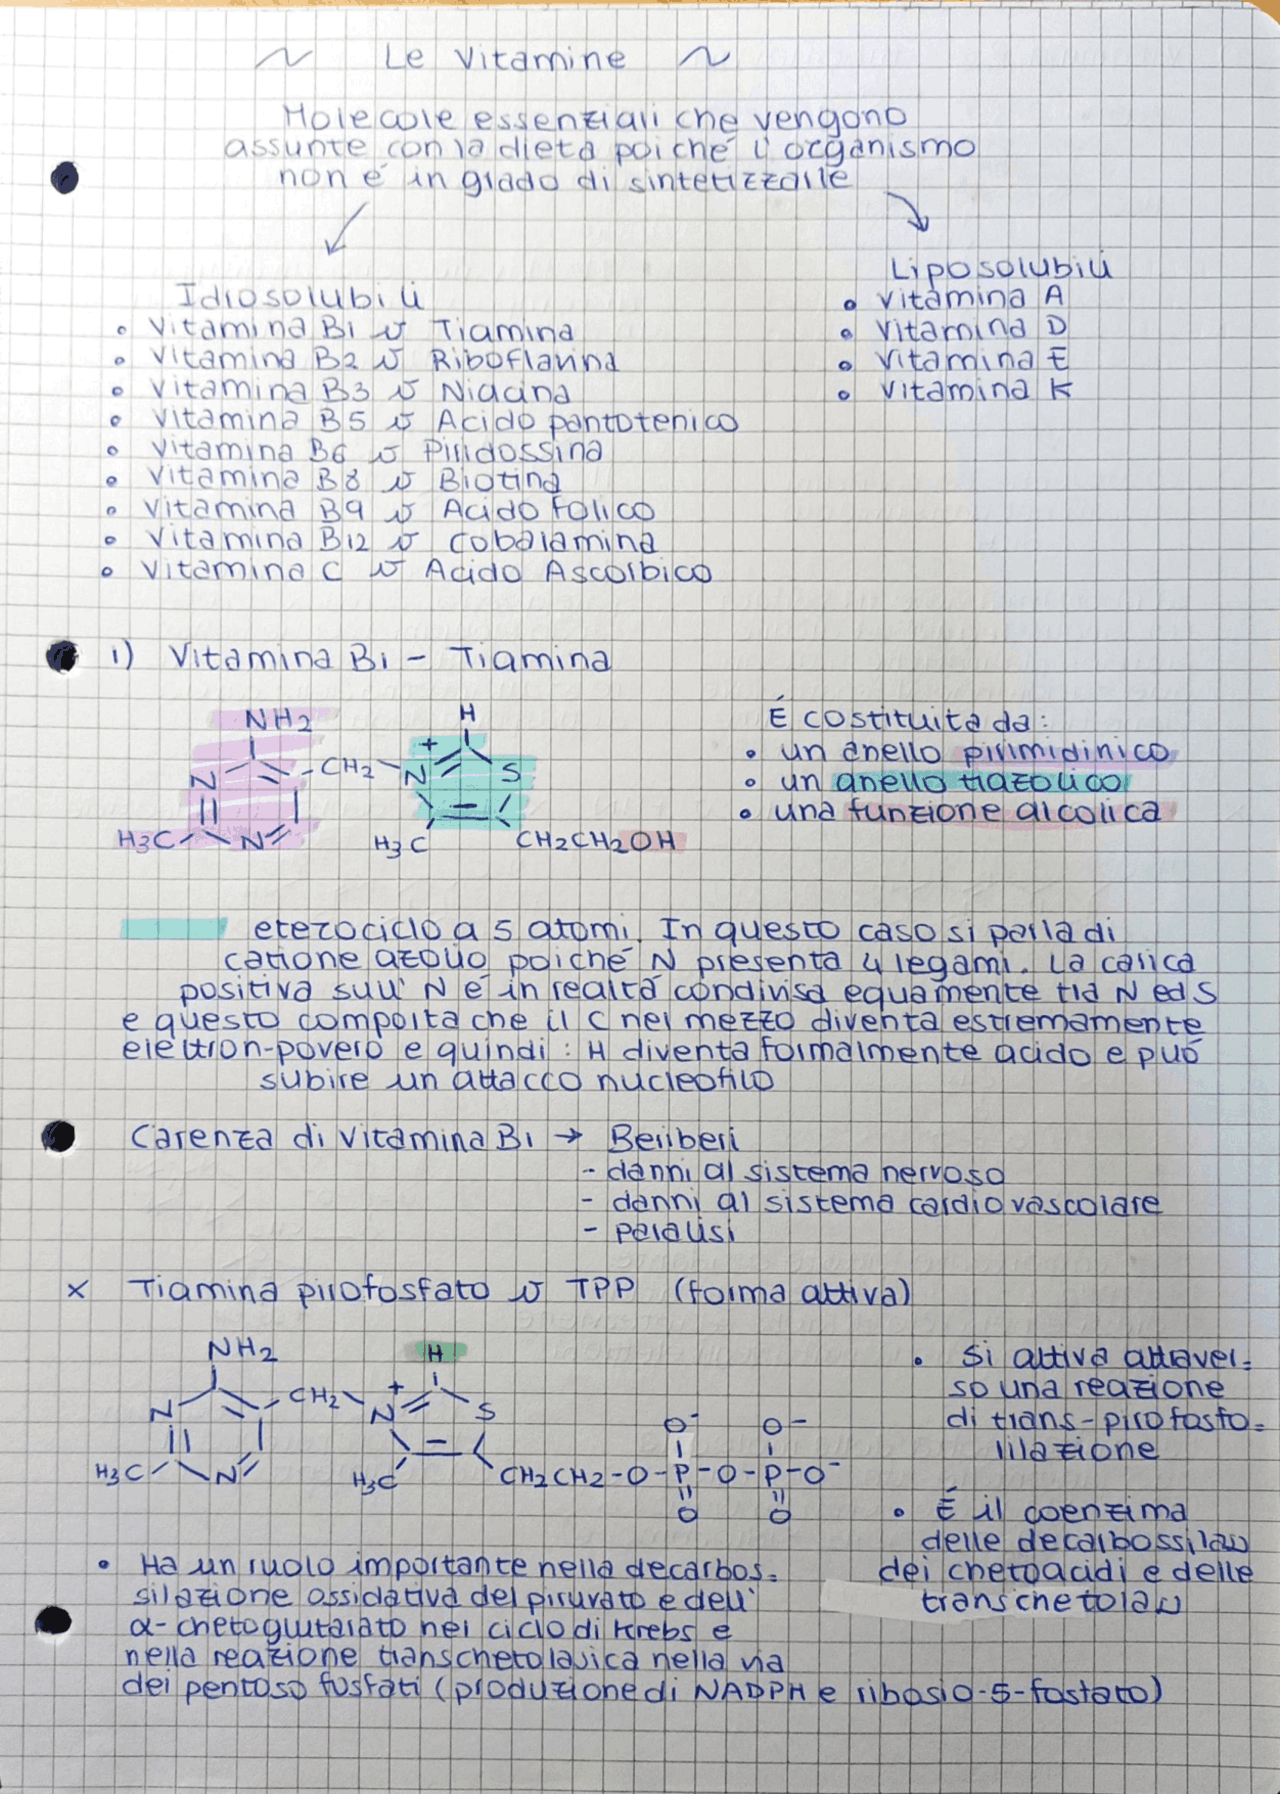 ~ Le Vitamine ~
Molecole essenziali che vengono
assunte con la dieta poiché l'organismo
non é in grado di sintetizzarle
Idrosolubili
• Vitamina B1 ~ Tiamina
• Vitamina B2 ~ Riboflavina
• Vitamina B3 ~ Niacina
• Vitamina B5 ~ Acido pantotenico
• Vitamina B6 ~ Piridossina
• Vitamina B8 ~ Biotina
• Vitamina B9 ~ Acido Folico
• Vitamina B12 ~ Cobalamina
• Vitamina C ~ Acido Ascorbico
Liposolubili
• Vitamina A
• Vitamina D
• Vitamina E
• Vitamina K
1) Vitamina B1 - Tiamina
NH2
H
N
CH2
N
+
S
H3C
N
H3C
CH2CH2OH
É costituita da:
• un anello pirimidinico
• un anello tiazolico
• una funzione alcolica
eterociclo a 5 atomi. In questo caso si parla di
catione azolio poiché N presenta 4 legami. La carica
positiva sull' N é in realtá condivisa equamente tra N ed S
e questo comporta che il C nel mezzo diventa estremamente
elettron-povero e quindi: H diventa formalmente acido e puó
subire un attacco nucleofilo
Carenza di vitamina B1 → Beriberi
- danni al sistema nervoso
- danni al sistema cardiovascolare
- paralisi
x Tiamina pirofosfato ~ TPP (forma attiva)
NH2
H
N
CH2
N
+
S
H3C
N
H3C
O-
O-
CH2CH2-O-P-O-P-O-
O
O
• Si attiva attraver=
so una reazione
di trans-pirofosfo=
rilazione
• É il coenzima
delle decarbossilasi
dei chetoacidi e delle
transchetolasi
• Ha un ruolo importante nella decarbos=
silazione ossidativa del piruvato e dell'
α-chetoglutarato nel ciclo di Krebs e
nella reazione transchetolasica nella via
dei pentoso fosfati (produzione di NADPH e ribosio-5-fosfato)